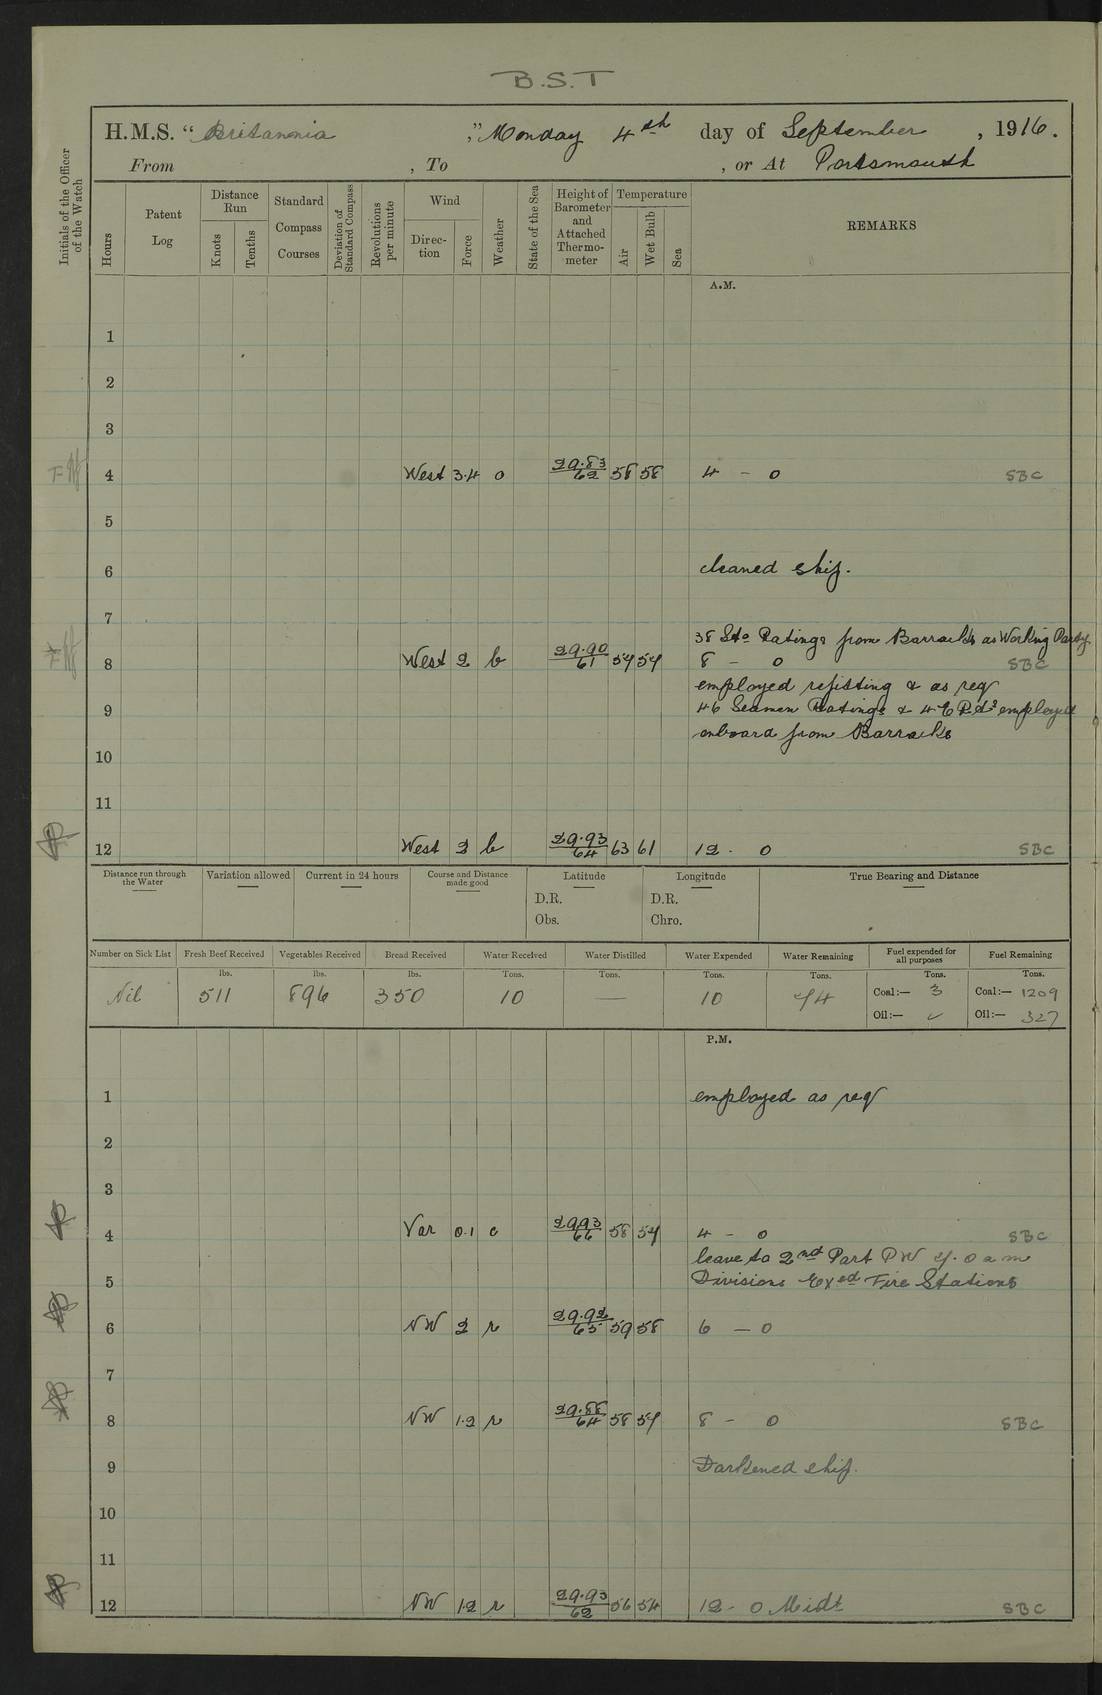 B.S.T
H.M.S. "Britannia," Monday 4th day of September, 1916.
From , To , or At Portsmouth
Initials of the Officer of the Watch
Hours
Patent Log
Distance Run
Knots
Tenths
Standard Compass Courses
Deviation of Standard Compass
Revolutions per minute
Wind
Direction
Force
Weather
State of the Sea
Height of Barometer and Attached Thermometer
Temperature
Air
Wet Bulb
Sea
REMARKS
A.M.
1
2
3
4 West 3.4 o 29.83/62 58 58 4 - 0 SBC
5
6 cleaned ship.
7
38 Sto Ratings from Barracks as Working Party
8 West 2 b 29.90/61 54 54 8 - 0 SBC
employed refitting & as req
9 46 Seamen Ratings & employed
onboard from Barracks
10
11
12 West 2 b 29.93/64 63 61 12 - 0 SBC
Distance run through the Water
Variation allowed
Current in 24 hours
Course and Distance made good
Latitude
D.R.
Obs.
Longitude
D.R.
Chro.
True Bearing and Distance
Number on Sick List Fresh Beef Received Vegetables Received Bread Received Water Received Water Distilled Water Expended Water Remaining Fuel expended for all purposes Fuel Remaining
lbs. lbs. lbs. Tons. Tons. Tons. Tons. Tons. Tons.
Nil 511 896 350 10 — 10 74 Coal:— 3 Coal:— 1209
Oil:— ✓ Oil:— 327
P.M.
1 employed as req
2
3
4 Var 0.1 c 29.93/66 58 57 4 - 0 SBC
leave to 2nd Part PW 7.0 am
5 Divisions Exed Fire Stations
6 NW 2 r 29.92/65 59 58 6 - 0
7
8 NW 1.2 r 29.88/64 58 57 8 - 0 SBC
9 Darkened ship.
10
11
12 NW 1.2 r 29.93/62 56 54 12 - 0 Midt SBC